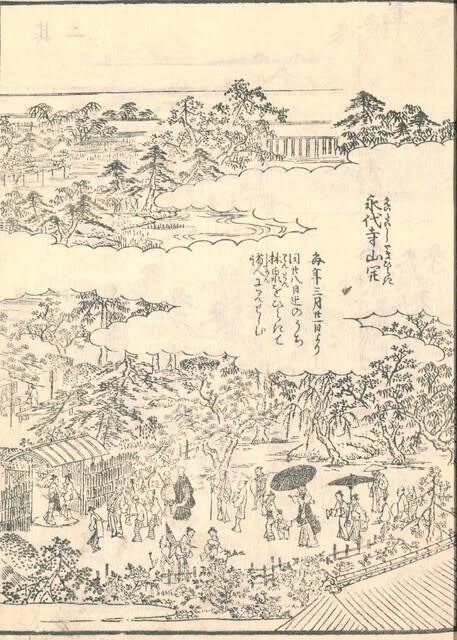 永代寺山開
毎年三月廿一日より
同廿八日迄のうち
林泉をひらきて
諸人に